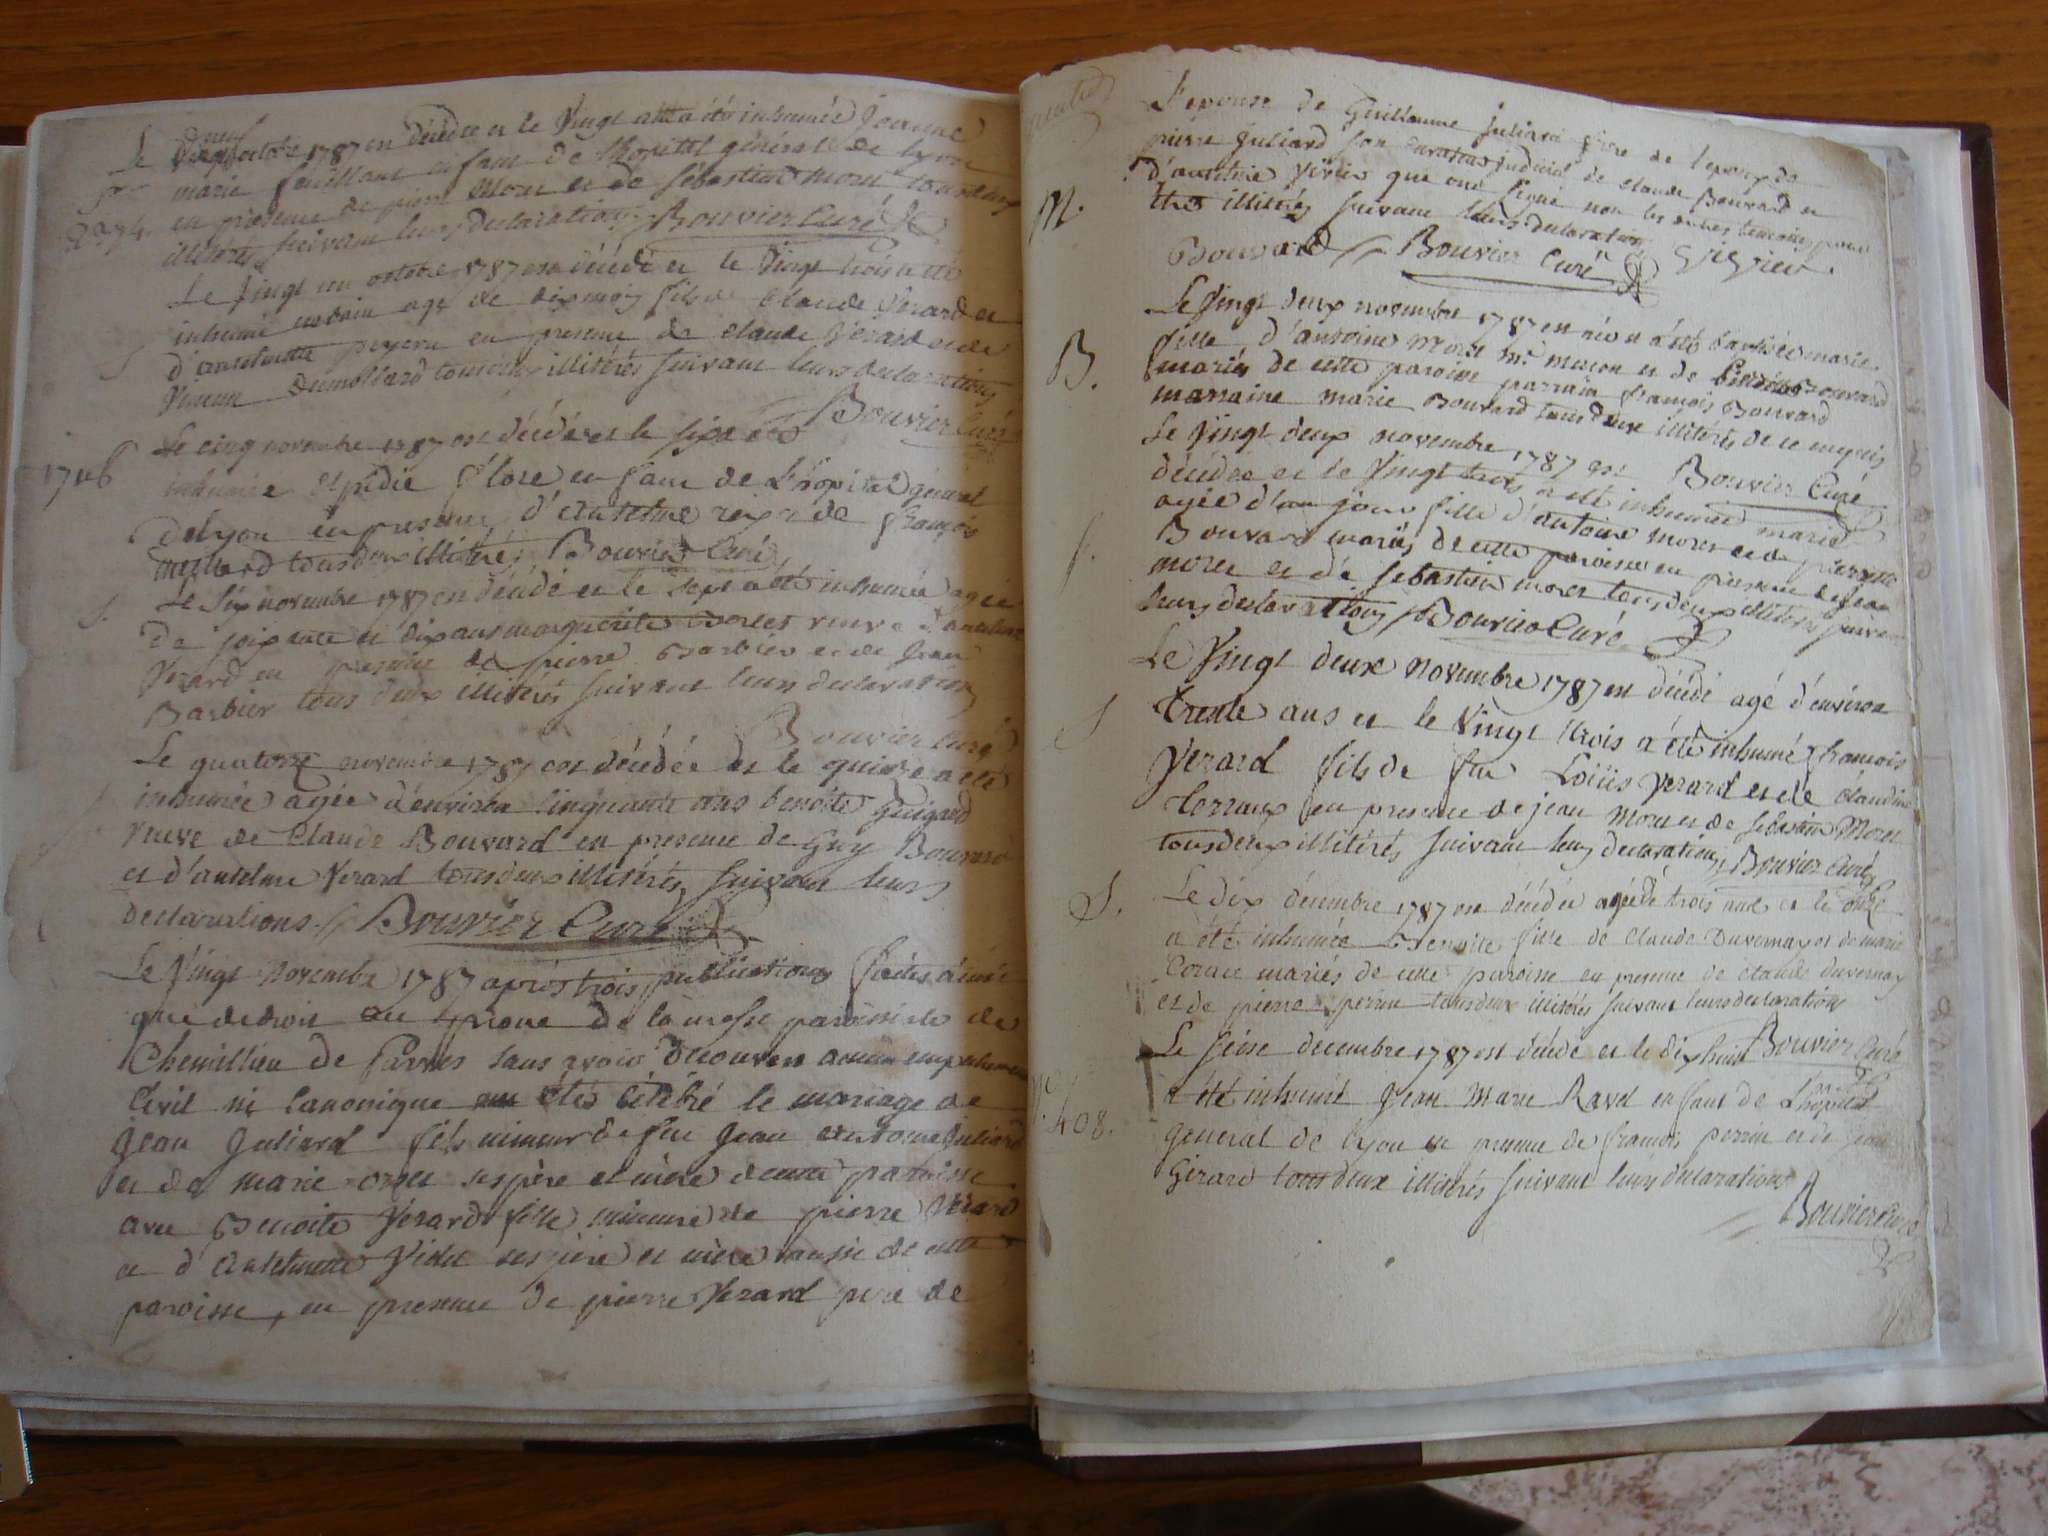 Le dixneuf octobre 1787 est décédée et le Vingt a été inhumée Jeanne
marie enfant de l'hopital général de lyon
2974.
en présence de pierre Moret et de sebastien moret tous deux
illitérés suivant leurs declarations Bouvier Curé
Le Vingt un octobre 1787 est décédé et le Vingt trois a été
inhumé agé de dix mois fils de Claude Verard et
S
d'antelmette peysou en presence de claude Verard et de
Dumollard tous deux illitérés suivant leurs declarations
Bouvier Curé
Le cinq novembre 1787 est décédée et le six a été
1706
inhumée Elpidie Flore enfant de L'hopital général
de lyon en presence d'antelme et de françois
tous deux illitérés Bouvier Curé
S.
Le Six novembre 1787 est décédée et le sept a été inhumée agée
de soixante et dix ans marguerite veuve d'antelme
Verard en presence de pierre Barbier et de Jean
Barbier tous deux illitérés suivant leurs declarations
Bouvier Curé
Le quatorze novembre 1787 est décédée et le quinze a été
inhumée agée d'environ cinquante ans benoite Guigard
Veuve de Claude Bouvard en presence de Guy Bouvard
et d'antelme Verard tous deux illitérés suivant leurs
declarations. // Bouvier Curé
Le Vingt Novembre 1787 après trois publications faites
que de droit au prone de la messe paroissiale de
Chemillieu de Parves sans avoir découvert aucun empechement
Civil ni Canonique été célébré le mariage de
Jean Juliard fils mineur de feu Jean antoine Juliard
et de marie ses père et mère de cette paroisse
avec Benoite Verard fille mineure de pierre Verard
et d'antelmette ses père et mère aussi de cette
paroisse, en presence de pierre Verard pere de
l'epouse de Guillaume Juliard frere de l'epoux de
pierre Juliard son curateur judiciel de claude Bouvard et
d'antelme que ont signé non les autres temoins pour
M.
etre illitérés suivant leurs declarations
Bouvard // Bouvier Curé
Le Vingt deux novembre 1787 est née et a été baptisée marie
fille d'antoine Moret me macon et de Bouvard
B.
mariés de cette paroisse parrain françois Bouvard
marraine marie Bouvard tous deux illitérés de ce enquis
Le Vingt deux novembre 1787 est Bouvier Curé
décédée et le Vingt trois a été inhumée marie
agée d'un jour fille d'antoine moret et de pierrette
S.
Bouvard mariés de cette paroisse en presence de Jean
moret et de sebastien moret tous deux illitérés suivant
leurs declarations // Bouvier Curé
Le Vingt deux novembre 1787 est décédé agé d'environ
S
Trente ans et le Vingt trois a été inhumé françois
Verard fils de feu Loüis Verard et de claudine
en presence de jean Moret et de sebastien Moret
tous deux illitérés suivant leurs declarations Bouvier Curé
S.
Le dix decembre 1787 est décédée agée de trois ans et le onze
a été inhumée Benoite fille de Claude Duvernay et de marie
mariés de cette paroisse en presence de claude duvernay
et de pierre perrin tous deux illitérés suivant leurs declarations
Le seise decembre 1787 est décédé et le dix huit Bouvier Curé
a été inhumé Jean Marie Ravel enfant de L'hopital
408.
general de lyon en presence de françois perrin et de Jean
Girard tous deux illitérés suivant leurs declarations
Bouvier Curé